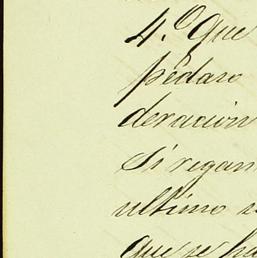 4.º Que
pedaso
deracion
Si regam
ultimo
que se ha